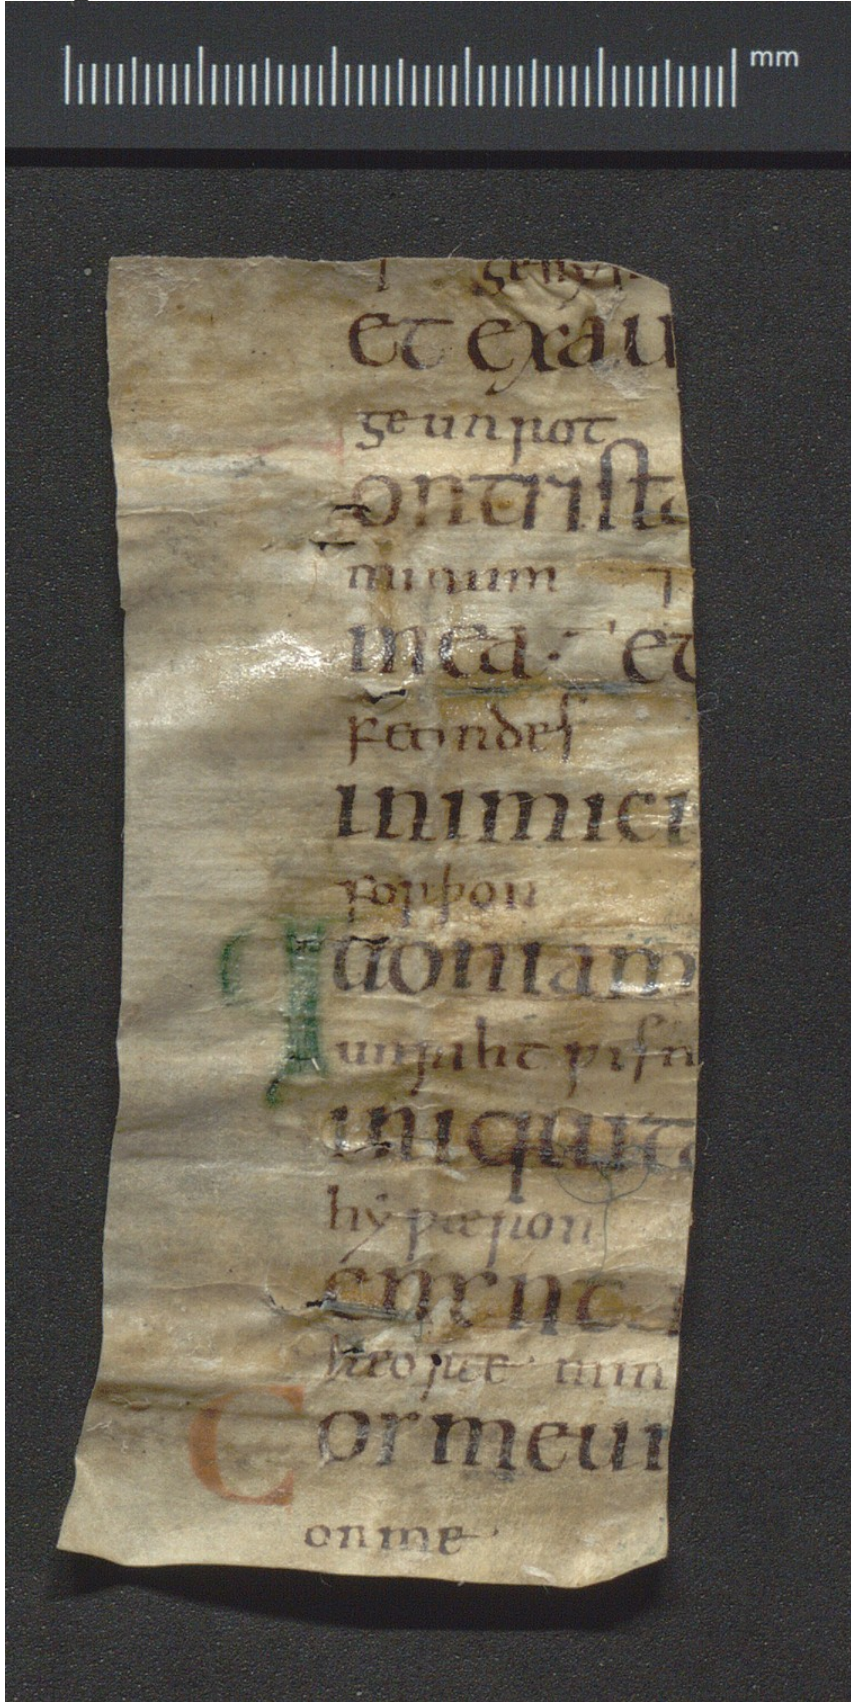 mm
⁊ gehyr
et exau
ge unrot
ontrist
minum ⁊
mea· et
feondes
inimici
forþon
Quoniam
unriht ƿisn
iniquit
hẏ ƿæron
erant
heorte min
Cor meu
on me